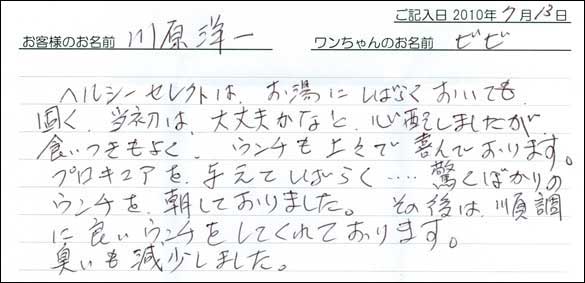 ご記入日 2010年 7月 13日
お客様のお名前 川原洋一 ワンちゃんのお名前 ビビ
ヘルシーセレクトは、お湯にしばらくおいても
固く、当初は、大丈夫かなと、心配しましたが
食いつきもよく、ウンチも上々で喜んでおります。
プロキュアを、与えてしばらく‥‥驚くばかりの
ウンチを、朝しておりました。 その後は、順調
に良いウンチをしてくれております。
臭いも減少しました。